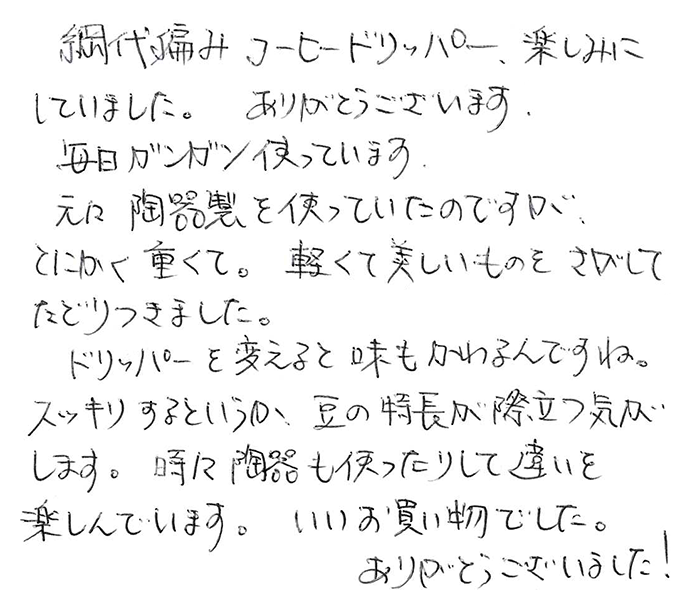 網代編みコーヒードリッパー、楽しみに
していました。 ありがとうございます.
毎日ガンガン使っています.
元々陶器製を使っていたのですが、
とにかく重くて。軽くて美しいものをさがして
たどりつきました。
ドリッパーを変えると味もかわるんですね。
スッキリするというか、豆の特長が際立つ気が
します。時々陶器も使ったりして違いを
楽しんでいます。 いいお買い物でした。
ありがとうございました!